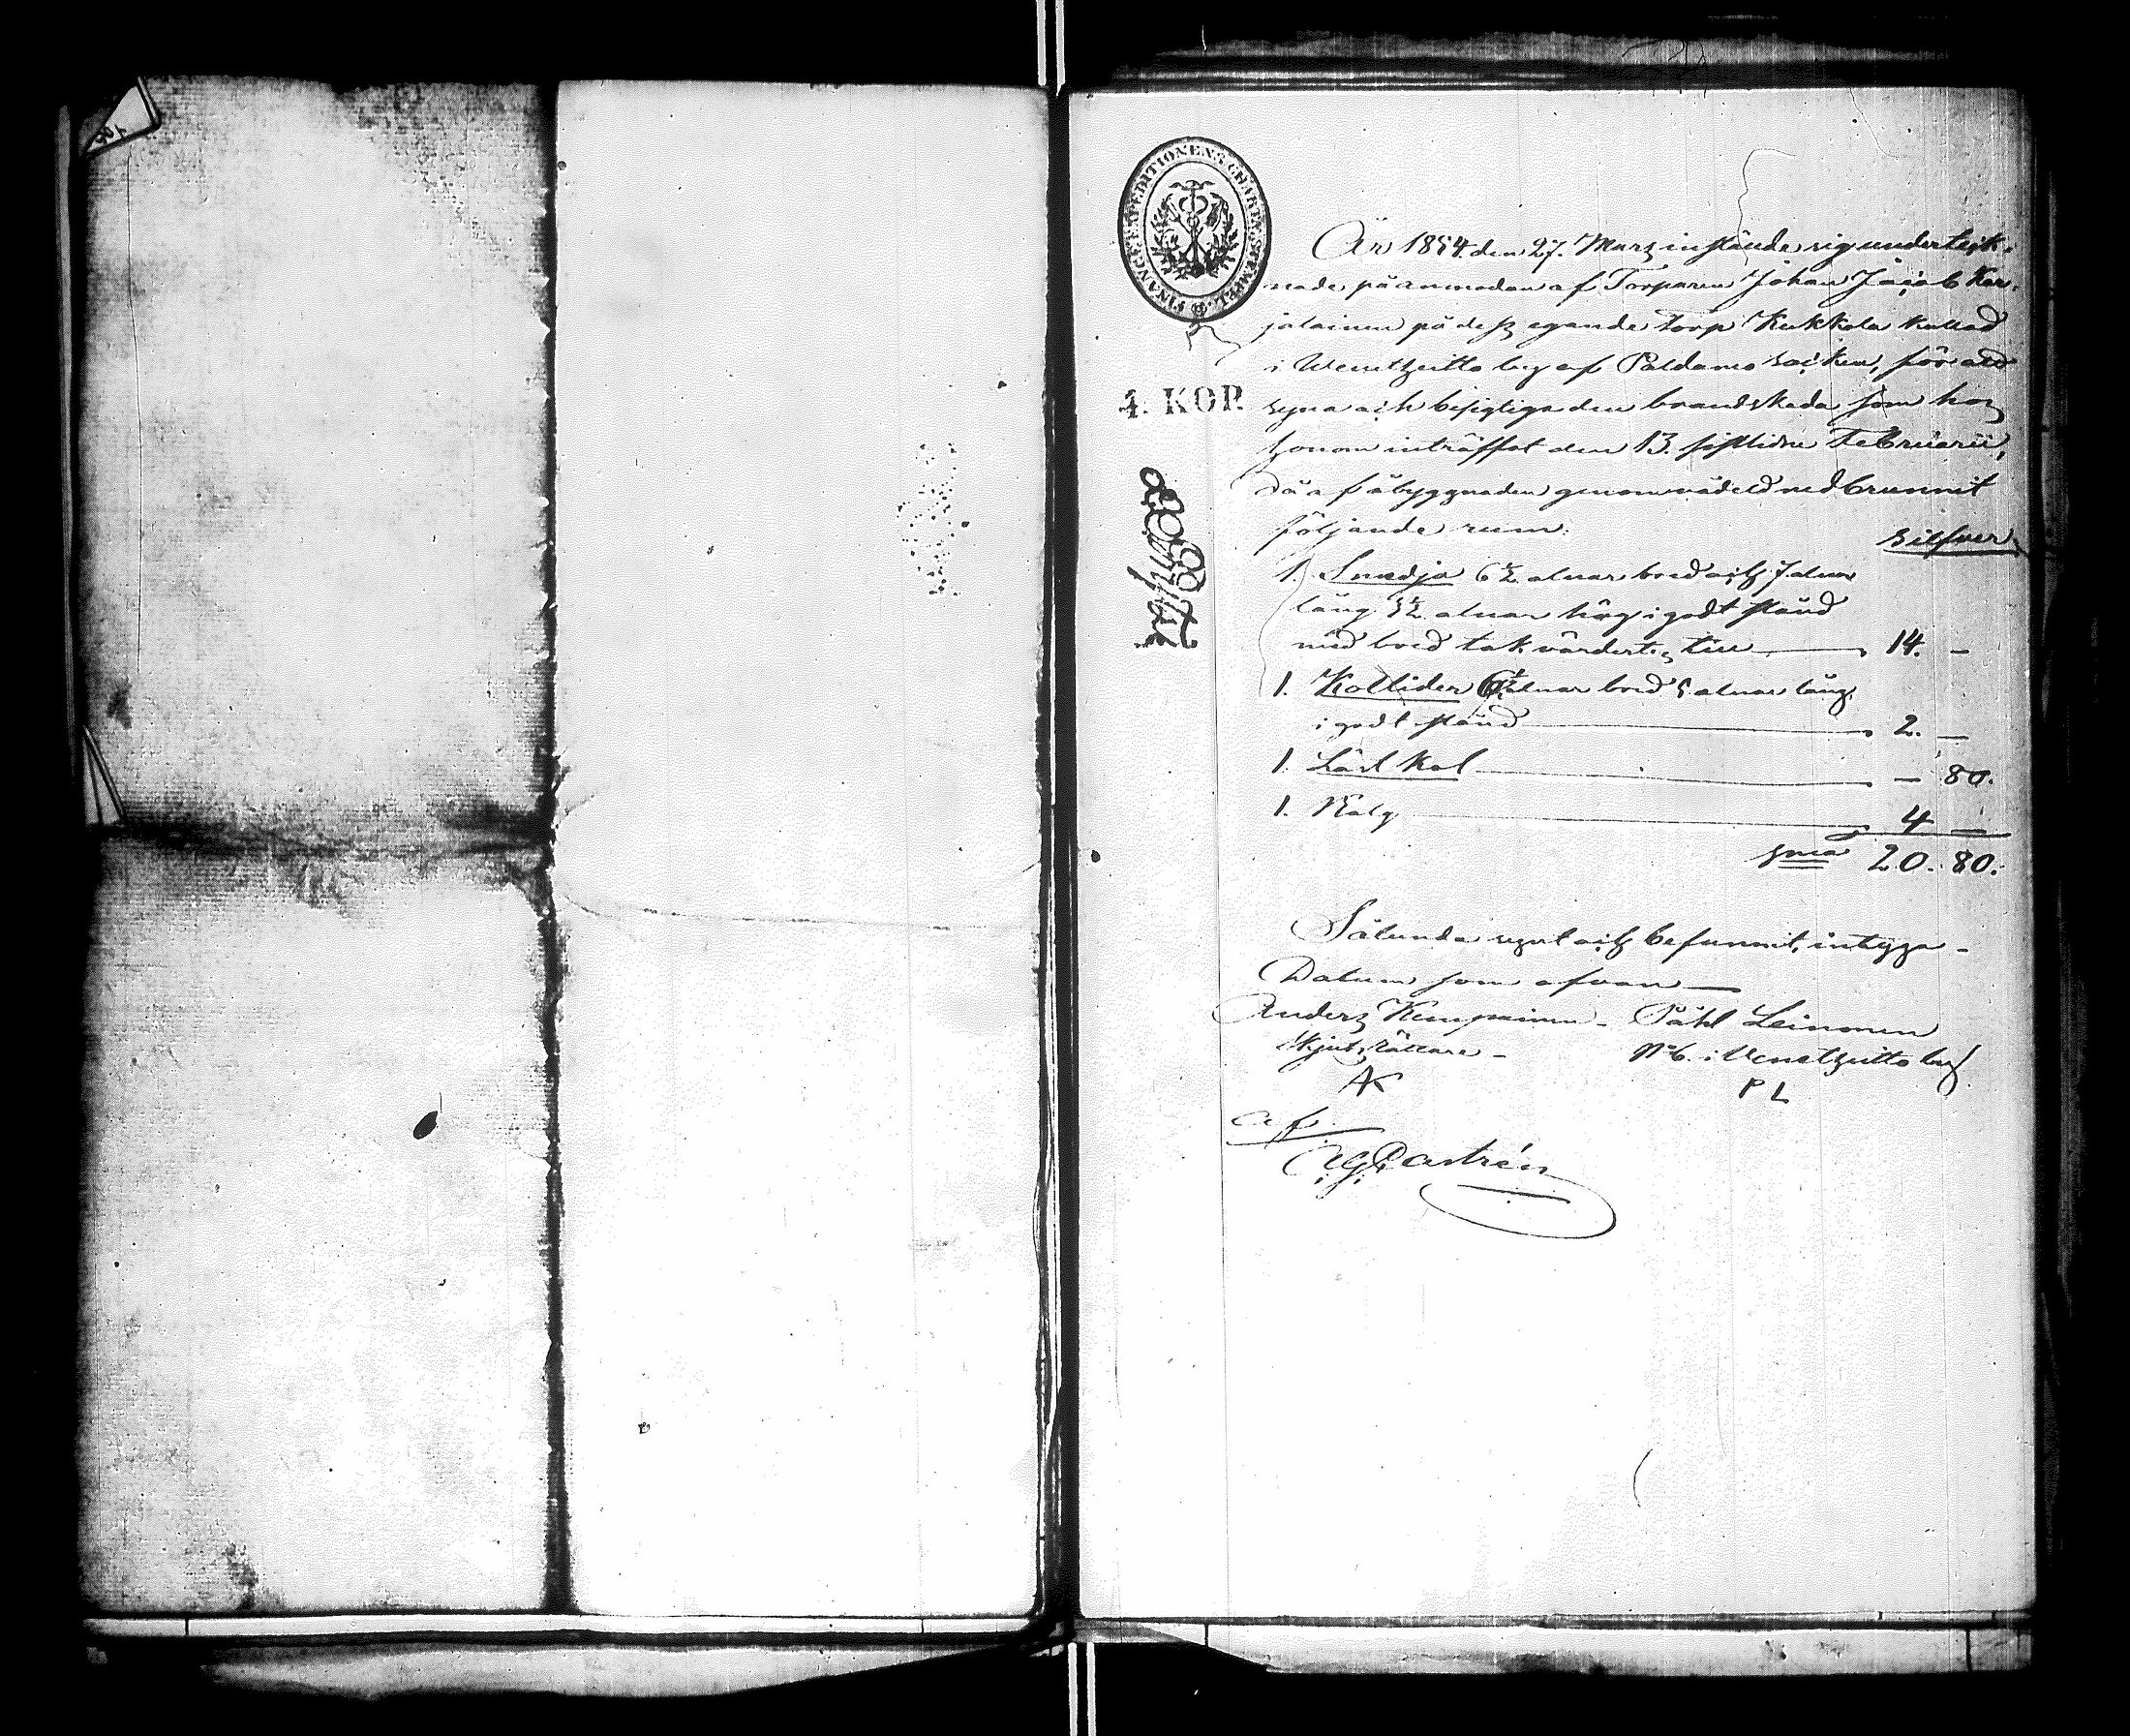 FINANCE-EXPEDITIONENS CHARTÆ STEMPEL
År 1854. den 27. Mars instälde sig underteck-
nade på anmodan af Torparen Johan Jacob Kar-
jalainen på desz egande torp Kukkola kallad
i Wenetheitto by af Paldamo socken, för att
4. KOP.
syna och besigtiga den brandskada som hos
honom inträffat den 13. sistlidne Februarii,
då af åbyggnaden genom vådeld nedbrunnit
följande rum:
Silfver
1. Smedja 6½ alnar bred och 7 alnar
lång 3½ alnar hög i godt stånd
med bred tak värderts till 14. —
1. Kollider 6½ alnar bred 5 alnar lång,
i godt stånd 2. —
1. Läst kol — 80.
1. Bälg 4 —
Sma 20. 80.
Sålunda synt och befunnit, intyga -
Datum som ofvan
Anders Kemppainen - Påhl Leinonen
Skjutsrättare - No 6. i Wenetheitto by
AK
P L
af.
Castrén